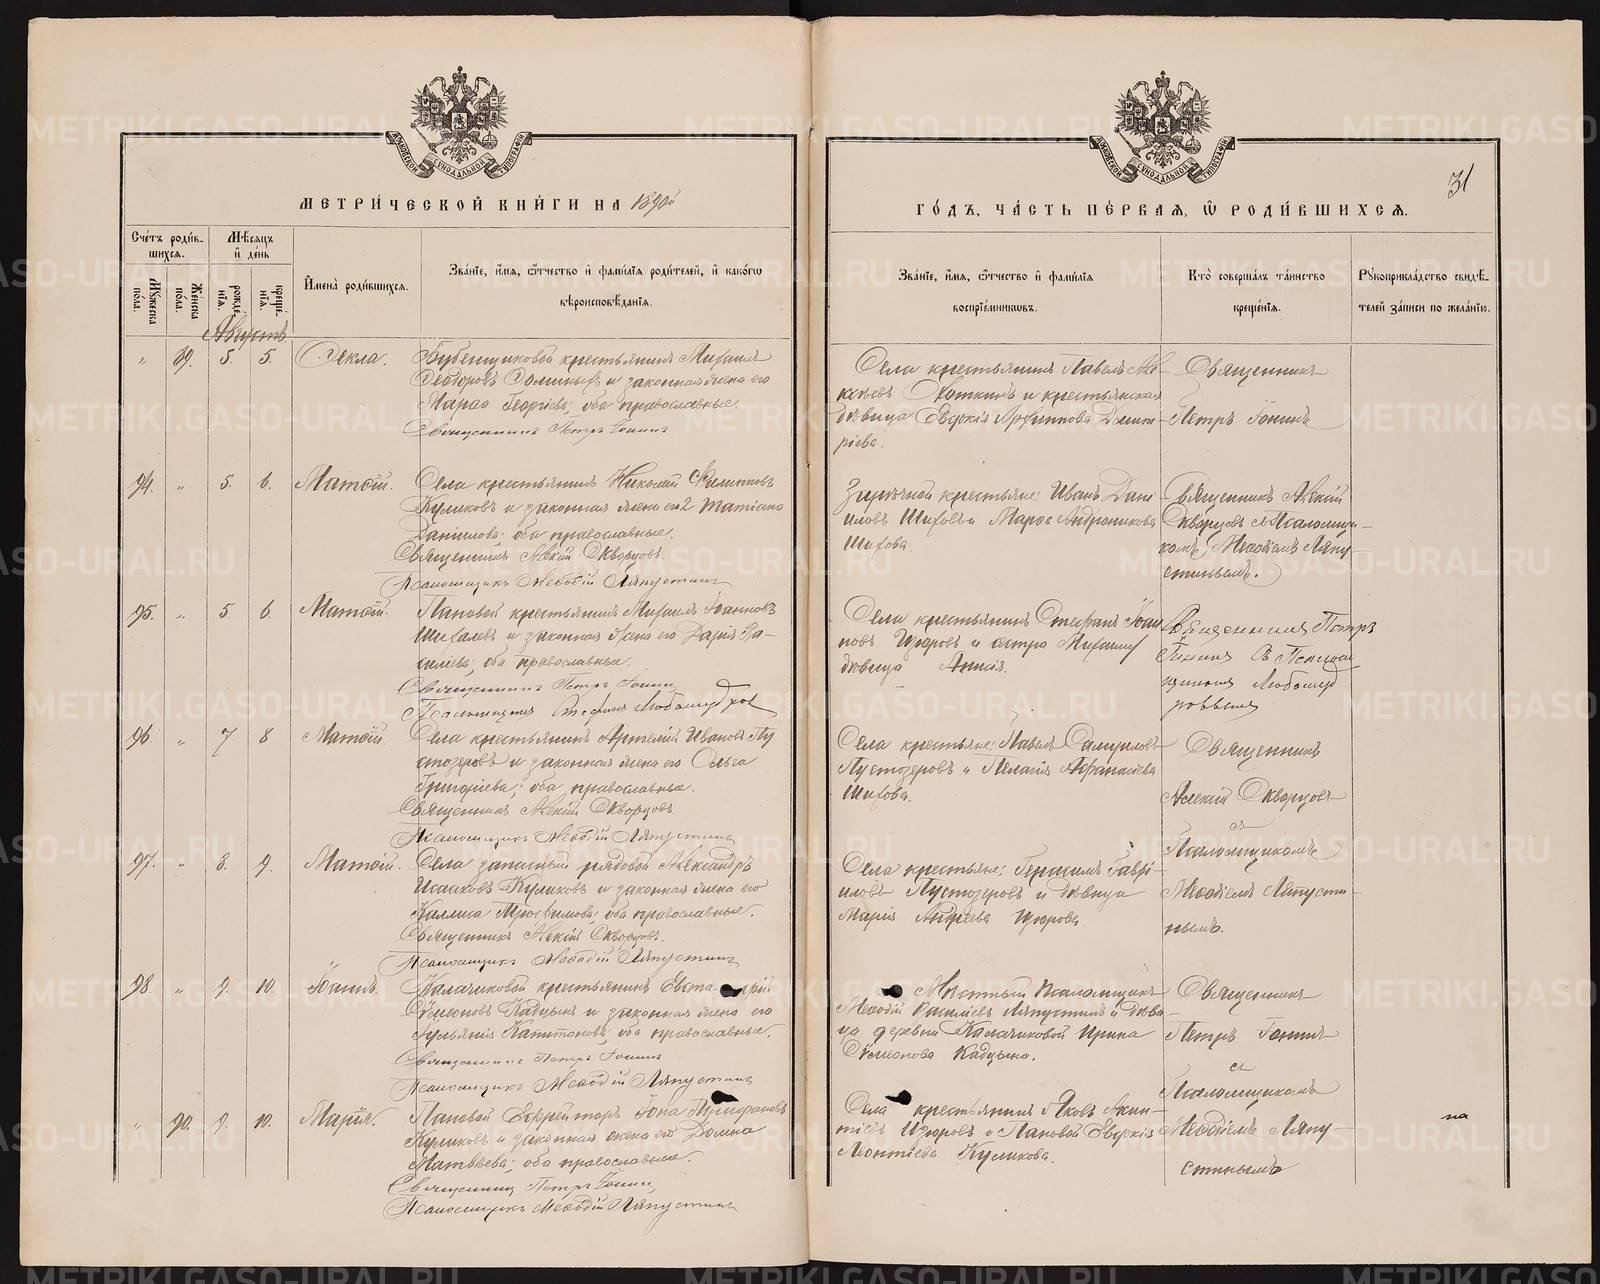 МЕТРИ́ЧЕСКОЙ КНИ́ГИ НА 1890й
ГО́ДЪ, ЧА́СТЬ ПЕ́РВАЯ, Ѿ РОДИ́ВШИХСЯ.
31
Сче́тъ роди́в-
шихся.
Мѣ́сяцъ
и҆ де́нь
Мꙋжеска по́ла.
Же́нска по́ла.
рожде́нїѧ.
креще́нїѧ.
И҆мена̀ роди́вшихся.
Зва́нїе, и҆́мѧ, ѻ҆́тчество и҆ фами́лїѧ роди́телей, и҆ како́гѡ
вѣроисповѣ́данїѧ.
Зва́нїе, и҆́мѧ, ѻ҆́тчество и҆ фами́лїѧ
воспрїе́мникѡвъ.
Кто̀ соверша́лъ та́инство
креще́нїѧ.
Рꙋкоприкла́дство свидѣ́-
телей за́писи по жела́нїю.
Августъ
" 89. 5. 5. Ѳекла.
Бубенщиковой крестьянинъ Михаилъ
Ѳеодоровъ и законная жена его
Марѳа Георгіева; оба православные.
Священникъ Петръ Іонинъ
Села крестьянинъ Павелъ
и крестьянская
дѣвица Евдокія Димит-
ріева.
Священникъ
Петръ Іонинъ
94. " 5. 6. Матѳій.
Села крестьянинъ Николай Филиповъ
Куликовъ и законная жена его Татіана
Данилова; оба православные.
Священникъ Алексій Скворцовъ.
Псаломщикъ Меѳодій Ляпустинъ
крестьяне: Иванъ Дани-
иловъ Шиховъ и Марѳа Андроникова
Шихова.
Священникъ Алексій
Скворцовъ съ Псаломщи-
комъ Меѳодіемъ Ляпу-
стинымъ.
95. " 5 6. Матѳій.
Пановой крестьянинъ Михаилъ Іоанновъ
Шихалевъ и законная жена его Дарія Ва-
силіева; оба православные.
Священникъ Петръ Іонинъ
Псаломщикъ Стефанъ Любомудровъ
Села крестьянинъ Стефанъ Іоан-
новъ Изюровъ и сестра Михаилу
дѣвица Анисія.
Священникъ Петръ
Іонинъ Съ Псалом-
щикомъ Любомуд-
ровымъ
96. " 7 8 Матѳій.
Села крестьянинъ Артемій Ивановъ Пу-
стозеровъ и законная жена его Ольга
Григоріева; оба православные.
Священникъ Алексій Скворцовъ.
Псаломщикъ Меѳодій Ляпустинъ
Села крестьяне: Павелъ Самуиловъ
Пустозеровъ и Пелагія Аѳанасіева
Шихова.
Священникъ
Алексій Скворцовъ
съ
Псаломщикомъ
Меѳодіемъ Ляпусти-
нымъ.
97. " 8. 9. Матѳій.
Села запасный рядовой Александръ
Исааковъ Куликовъ и законная жена его
Трофимова; оба православные.
Священникъ Алексій Скворцовъ.
Псаломщикъ Меѳодій Ляпустинъ
Села крестьяне: Герасимъ Гаврі-
иловъ Пустозеровъ и дѣвица
Марія Андреева Изюрова.
98. " 9. 10. Іоаннъ.
Калачиковой крестьянинъ
Сѵмеоновъ Кадцынъ и законная жена его
Капитонова; оба православные.
Священникъ Петръ Іонинъ
Псаломщикъ Меѳодій Ляпустинъ
Мѣстный Псаломщикъ
Меѳодій Василіевъ Ляпустинъ и дѣви-
ца деревни Калачиковой Ирина
Сѵмеонова Кадцына.
Священникъ
Петръ Іонинъ
съ
Псаломщикомъ
Меѳодіемъ Ляпу-
стинымъ
" 90. 9. 10. Марія.
Пановой Ефрейторъ Іона
Куликовъ и законная жена его Домна
Матвѣева; оба православные.
Священникъ Петръ Іонинъ
Псаломщикъ Меѳодій Ляпустинъ
Села крестьянинъ Яковъ Акин-
ѳіевъ Изюровъ и Пановой Евдокія
Леонтіева Куликова.
на
METRIKI.GASO-URAL.RU